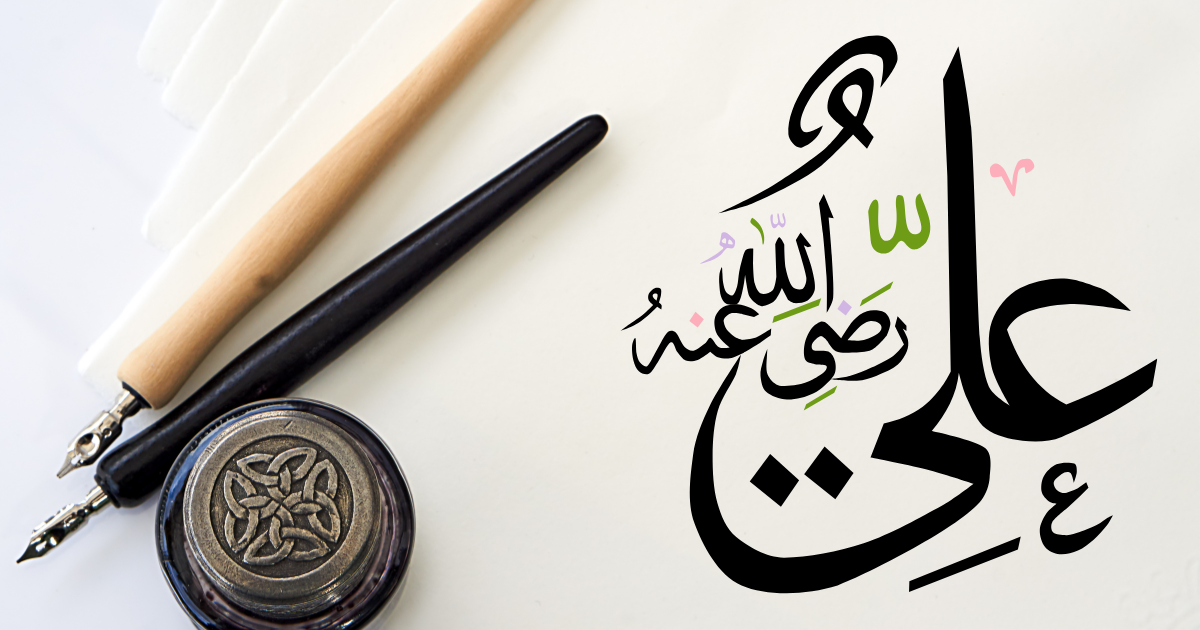 عليّ
رضي الله عنه